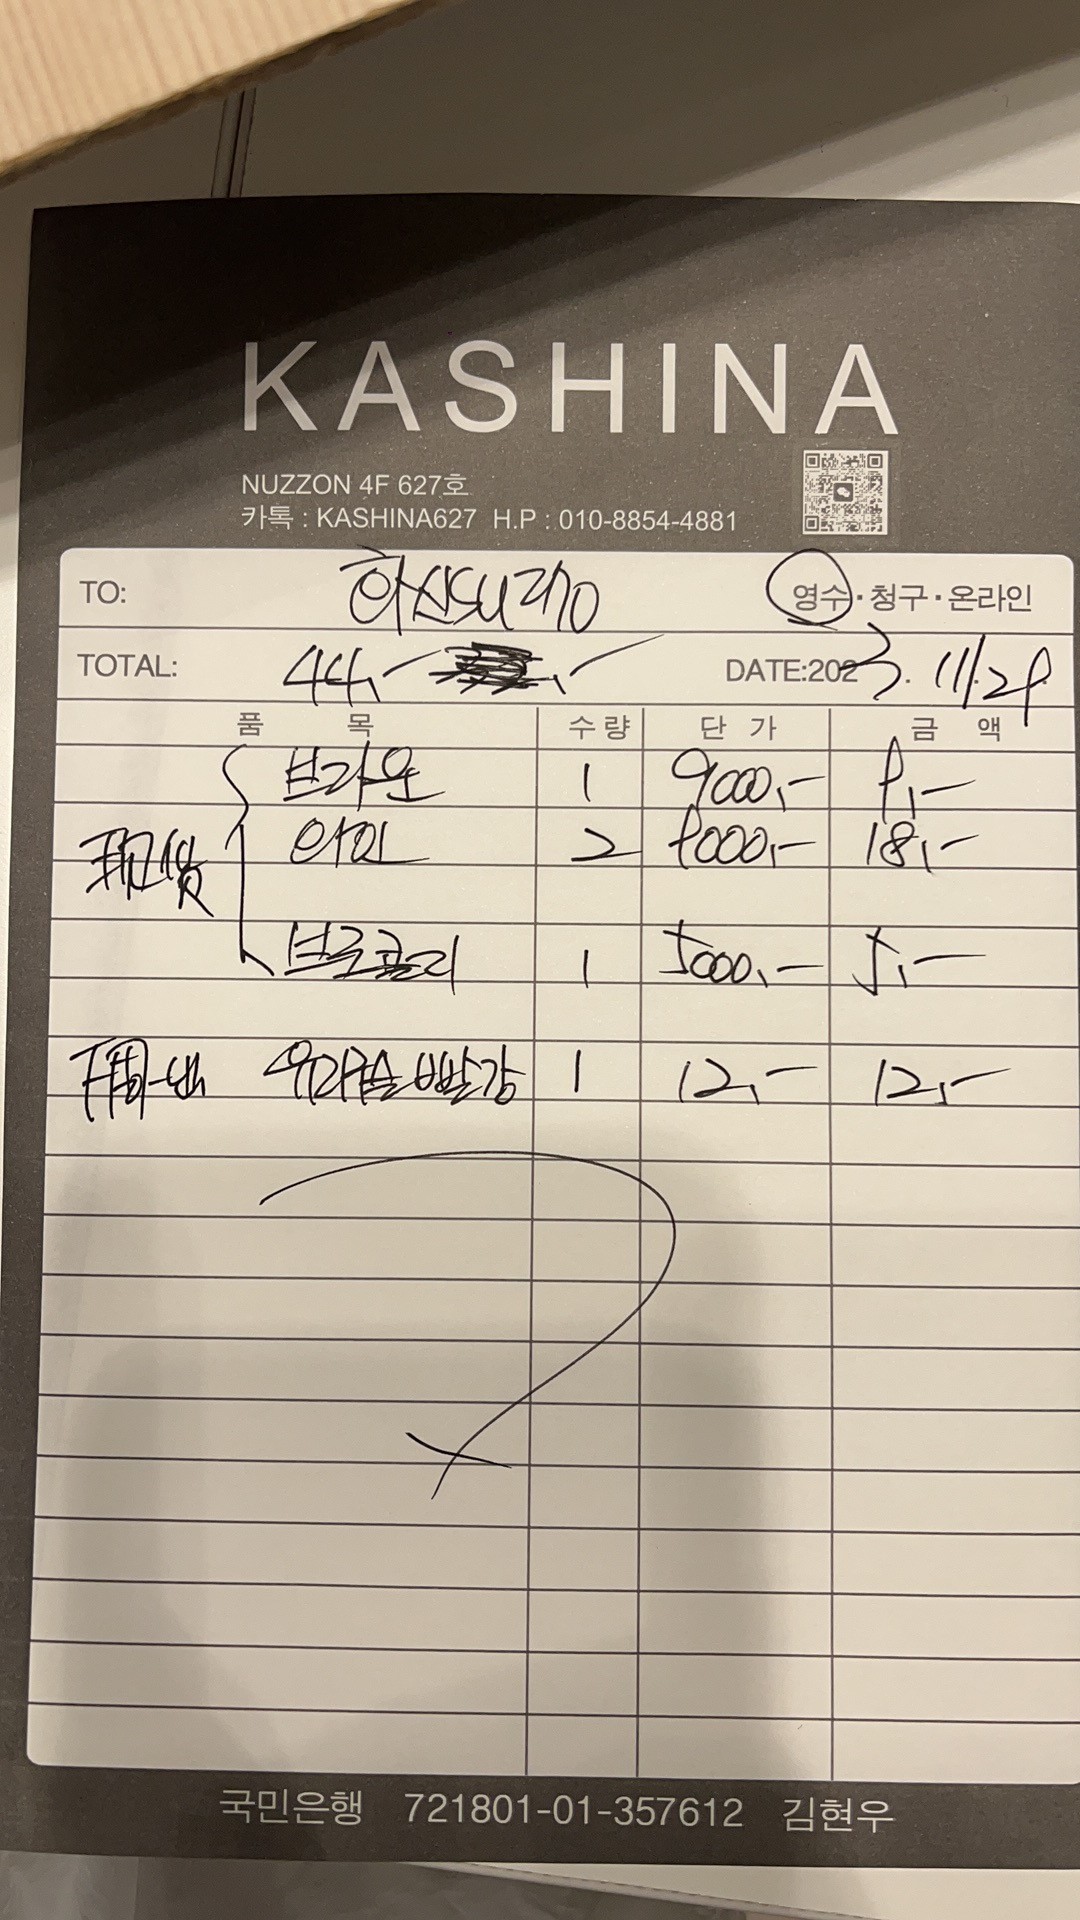 KASHINA
NUZZON 4F 627호
카톡 : KASHINA627 H.P : 010-8854-4881
TO: 영수 · 청구 · 온라인
TOTAL: 44,- DATE:2023. 11. 29
품 목 수량 단가 금액
브라운 1 9000,- 9,-
现货 와인 2 9000,- 18,-
브로콜리 1 5000,- 5,-
빨강 1 12,- 12,-
국민은행 721801-01-357612 김현우